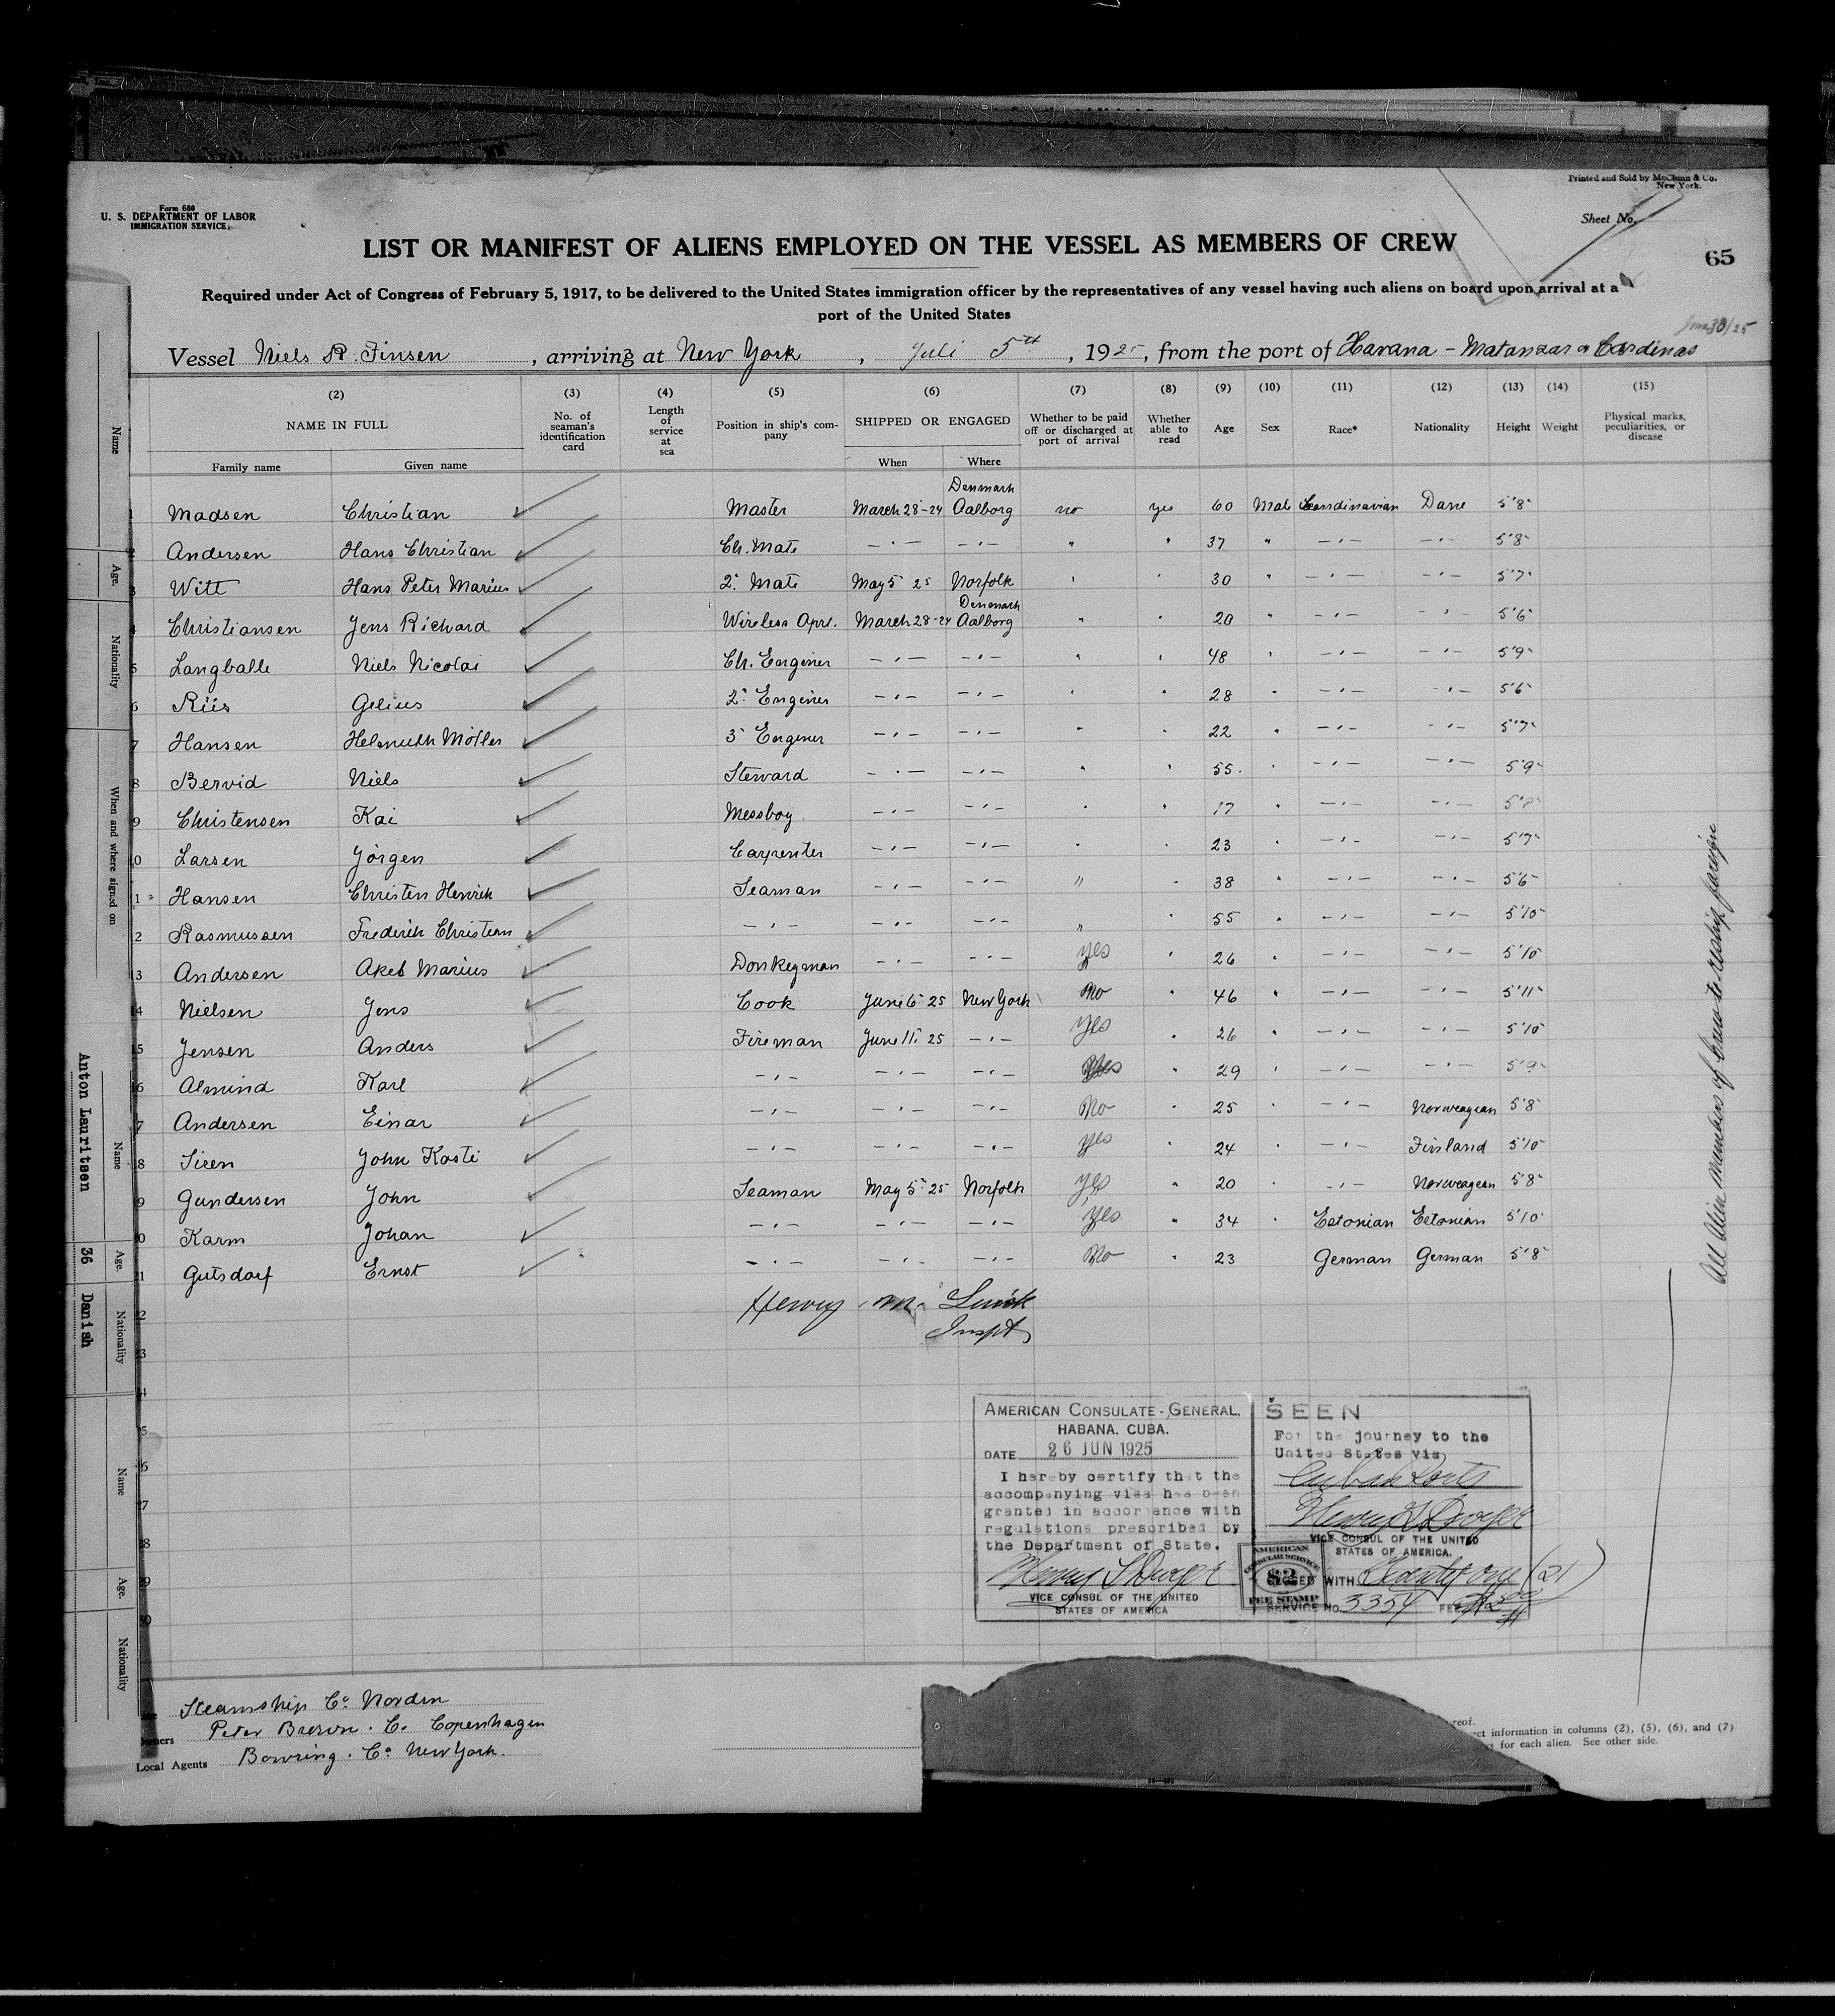 Printed and Sold by McClunn & Co.
New York.
Form 680
U. S. DEPARTMENT OF LABOR
IMMIGRATION SERVICE.
Sheet No.
LIST OR MANIFEST OF ALIENS EMPLOYED ON THE VESSEL AS MEMBERS OF CREW
65
Required under Act of Congress of February 5, 1917, to be delivered to the United States immigration officer by the representatives of any vessel having such aliens on board upon arrival at a
port of the United States
June 30/25
Vessel Niels R. Finsen, arriving at New York, Juli 5th, 1925, from the port of Havana - Matanzas & Cardenas
(2) (3) (4) (5) (6) (7) (8) (9) (10) (11) (12) (13) (14) (15)
NAME IN FULL No. of seaman's identification card Length of service at sea Position in ship's company SHIPPED OR ENGAGED Whether to be paid off or discharged at port of arrival Whether able to read Age Sex Race* Nationality Height Weight Physical marks, peculiarities, or disease
Family name Given name When Where
1 Madsen Christian Master March 28-24 Denmark Aalborg no yes 60 Male Scandinavian Dane 5'8"
2 Andersen Hans Christian Ch. Mate -"- -"- " " 37 " -"- -"- 5'8"
3 Witt Hans Peter Marius 2. Mate May 5 25 Norfolk " " 30 " -"- -"- 5'7"
4 Christiansen Jens Richard Wireless Oprt. March 28-24 Denmark Aalborg " " 20 " -"- -"- 5'6"
5 Langballe Niels Nicolai Ch. Enginer -"- -"- " " 48 " -"- -"- 5'9"
6 Riis Gelius 2. Enginer -"- -"- " " 28 " -"- -"- 5'6"
7 Hansen Helmuth Möller 3 Enginer -"- -"- " " 22 " -"- -"- 5'7"
8 Bervid Niels Steward -"- -"- " " 55 " -"- -"- 5'9"
9 Christensen Kai Messboy -"- -"- " " 17 " -"- -"-
10 Larsen Jörgen Carpenter -"- -"- " " 23 " -"- -"- 5'7"
11 Hansen Christen Henrik Seaman -"- -"- " " 38 " -"- -"- 5'6"
12 Rasmussen Frederik Christian -"- -"- -"- " " 55 " -"- -"- 5'10"
13 Andersen Aksel Marius Donkeyman -"- -"- yes " 26 " -"- -"- 5'10"
14 Nielsen Jens Cook June 6 25 New York No " 46 " -"- -"- 5'11"
15 Jensen Anders Fireman June 11. 25 -"- Yes " 26 " -"- -"- 5'10"
16 Almind Karl -"- -"- -"- " 29 " -"- -"- 5'9"
17 Andersen Einar -"- -"- -"- No " 25 " -"- Norweagean 5'8"
18 Siren John Kosti -"- -"- -"- yes " 24 " -"- Finland 5'10"
19 Gundersen John Seaman May 5 25 Norfolk Yes " 20 " -"- Norweagean 5'8"
20 Karm Johan -"- -"- -"- Yes " 34 " Estonian Estonian 5'10"
21 Gutsdorf Ernst -"- -"- -"- No " 23 German German 5'8"
22
23
24
25
26
27
28
29
30
Henry M.
Inspt
All Alien members of crew to reship foreign
Name
Age.
Nationality
When and where signed on
Anton Lauritsen 36 Danish
Name
Age.
Nationality
Name
Age.
Nationality
AMERICAN CONSULATE-GENERAL,
HABANA. CUBA.
DATE 26 JUN 1925
I hereby certify that the
accompanying visa has been
granted in accordance with
regulations prescribed by
the Department of State.
VICE CONSUL OF THE UNITED
STATES OF AMERICA
SEEN
For the journey to the
United States via
Cuban Ports
VICE CONSUL OF THE UNITED
STATES OF AMERICA.
CLOSED WITH Twenty one (21)
SERVICE No. 5354 FEE
AMERICAN
CONSULAR SERVICE
$2
FEE STAMP
Steamship Co. Norden
Owners Peter Brown. C. Copenhagen
Local Agents Bowring. Co New York.
reof.
ect information in columns (2), (5), (6), and (7)
s for each alien. See other side.